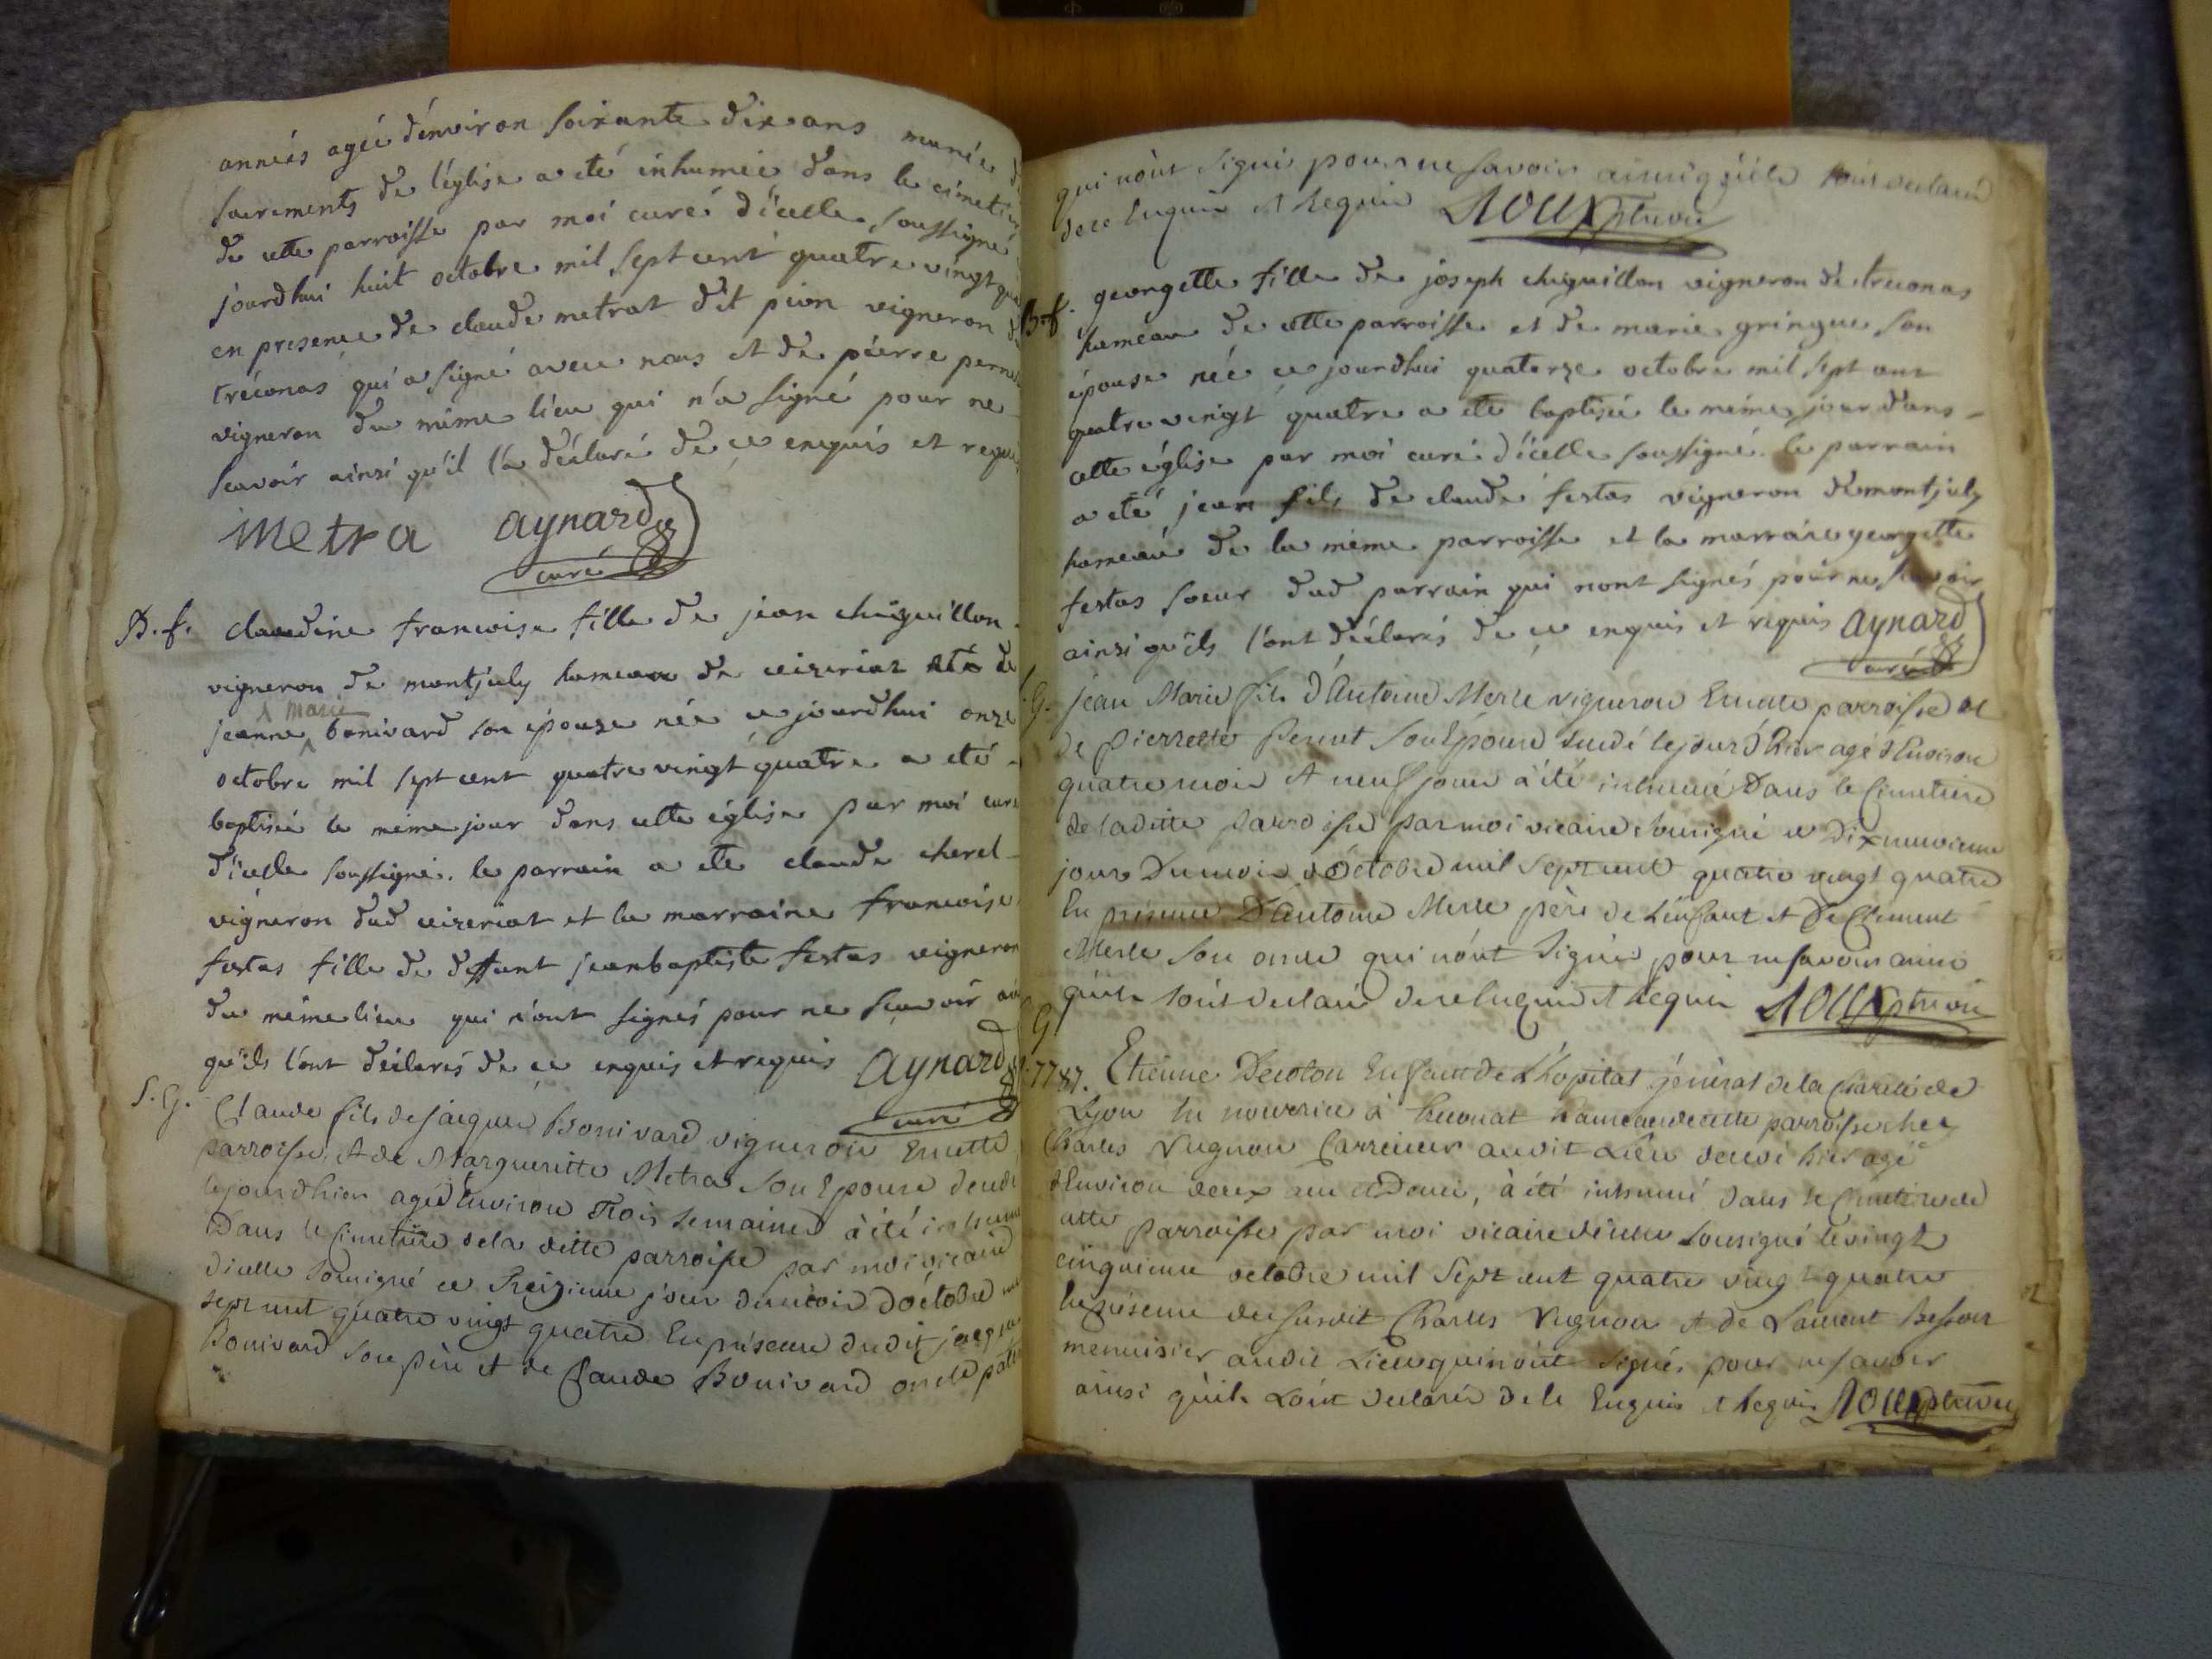 annnés agée d'environ soixante dix ans munée
sacrements de l'église a été inhumée dans le cimetier
de cette parroisse par moi curé d'icelle soussigné
jourdhui huit octobre mil sept cent quatre vingt
en presence de claude metrat dit pion vigneron
tréconas qui a signé avec nous et de pierre
vigneron du même lieu qui n'a signé pour ne
scavoir ainsi qu'il l'a déclaré de ce enquis et requis
Metra aynard
curé
B.f. claudine francoise fille de jean chiquillon
vigneron de montjuly hameau de ceizeriat et de
jeanne marie bonivard son épouse née ce jourdhui onze
octobre mil sept cent quatre vingt quatre a eté
baptisée le même jour dans cette église par moi curé
d'icelle soussigné. le parrain a ete claude cherel
vigneron dud ceizeriat et la marraine francoise
festas fille de deffunt jeanbaptiste festas vigneron
du même lieu qui n'ont signés pour ne scavoir
qu'ils l'ont déclarés de ce enquis et requis aynard
curé
S.G. Claude fils de jacques Bonivard vigneron En cette
parroisse, et de Margueritte Metra son Epouse
le jour dhier agé d'Environ Trois semaines à été inhumé
Dans le Cimetière de la ditte parroisse par moi vicaire
dicelle Sousigné ce Treizieme jour du mois d'octobre
sept cent quatre vingt quatre En présence dudit jacques
Bonivard son père et de Claude Bonivard oncle
qui nònt signés pour ne savoir ainsi qu'ils
de ce Enquis et Requis Roux ptre vic
B.f. georgette fille de joseph chiquillon vigneron de treconas
hameau de cette parroisse et de marie gringue son
épouse née ce jourdhui quatorze octobre mil sept cent
quatre vingt quatre a eté baptisée le même jour dans
cette église par moi curé d'icelle soussigné. le parrain
a eté jean fils de claude festas vigneron de montjuly
hameau de la même parroisse et la marraine georgette
festas soeur dud parrain qui n'ont signés pour ne scavoir
ainsi qu'ils l'ont déclarés de ce enquis et requis aynard
curé
G. jean Marie fils d'Antoine Merle vigneron En cette parroisse et
de pierrette Pernet son Epouse le jour d'hier agé d'Environ
quatre mois et neuf jours à été inhumé Dans le Cimetière
de la ditte parroisse par moi vicaire sousigné ce Dix neuvieme
jour Du mois d'Octobre mil Sept cent quatre vingt quatre
En présence D'antoine Merle père de L'enfant et De Clément
Merle son oncle qui nònt signés pour ne savoir ainsi
qu'ils de ce Enquis et Requis Roux ptre vic
G
1787. Etienne Decolon Enfant de L'hopital général de la charité de
Lyon En nourrice à treconat hameau de cette parroisse chez
Charles Vugnon Carrieur audit Lieu hier agé
d'Environ deux ans et Demi, à été inhumé dans le Cimetiere de
cette parroisse par moi vicaire d'icelle sousigné le vingt
cinquieme octobre mil Sept cent quatre vingt quatre
En présence du susdit Charles Vugnon et de Laurent
menuisier audit Lieu qui nont signés pour ne savoir
ainsi qu'ils L'ònt declarés de Ce Enquis et Requis Roux ptre vic